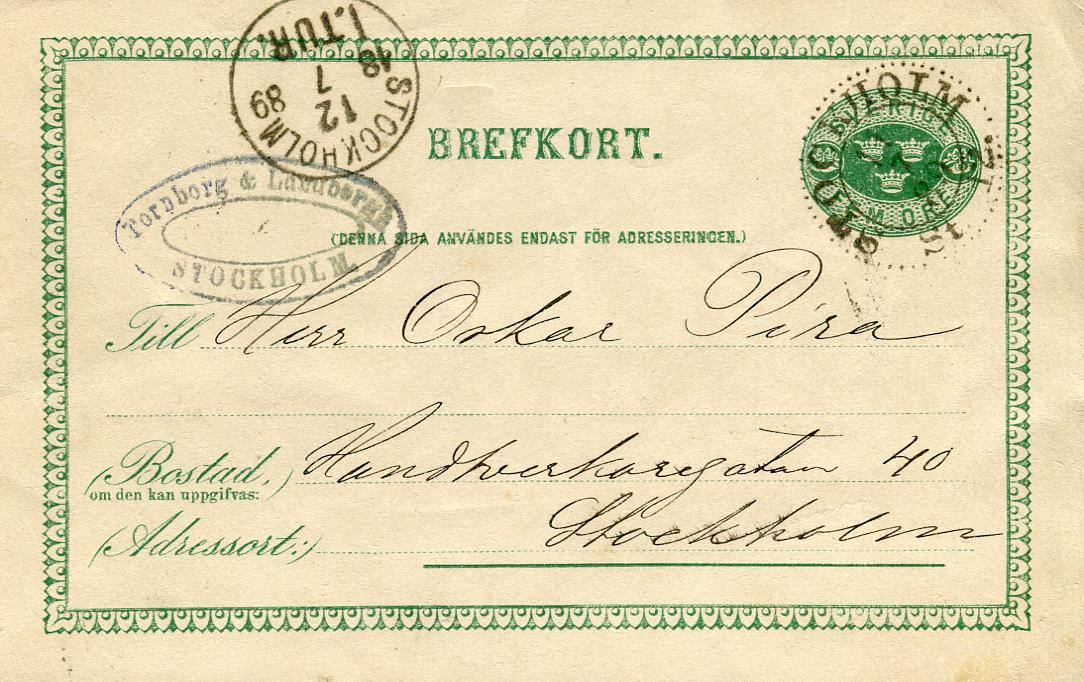 I. TUR.
STOCKHOLM
12
7
18 89
BREFKORT.
STOCKHOLM
SVERIGE
FEM ÖRE
Tornborg & Lundbergh
STOCKHOLM.
(DENNA SIDA ANVÄNDES ENDAST FÖR ADRESSERINGEN.)
Till Herr Oskar Pira
(Bostad,) Handtverkaregatan 40
om den kan uppgifvas:
Stockholm
(Adressort:)